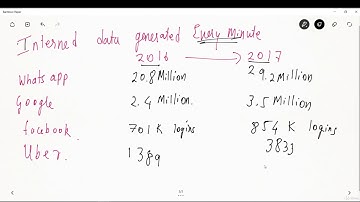 Interned data generated Every Minute
2016 2017
Whats app 20.8 Million 29.2 Million
Google 2.4 Million. 3.5 Million
facebook. 701 K logins 854 K logins
Uber. 1389 3833